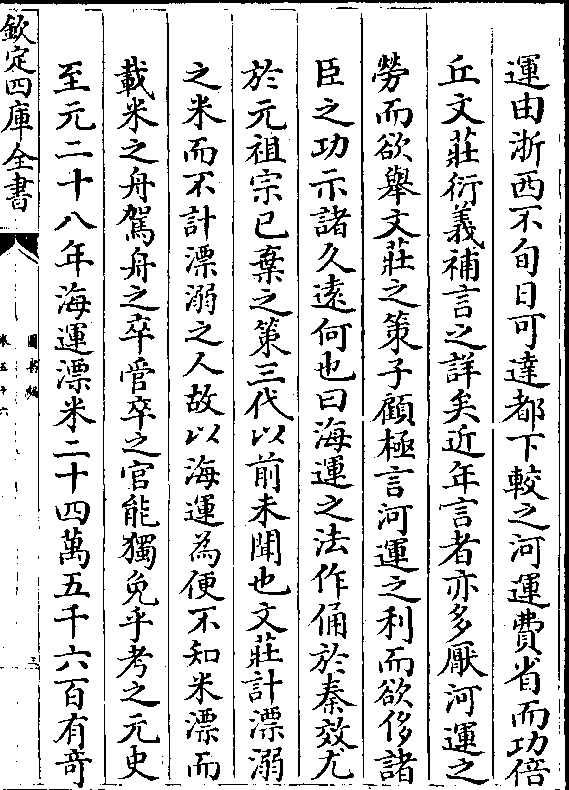 運由浙西不旬日可達都下較之河運費省而功倍
丘文莊衍義補言之詳矣近年言者亦多厭河運之
勞而欲舉文莊之策子顧極言河運之利而欲侈諸
臣之功示諸久遠何也曰海運之法作俑於秦效尤
於元祖宗已棄之策三代以前未聞也文莊計漂溺
之米而不計漂溺之人故以海運為便不知米漂而
載米之舟駕舟之卒管卒之官能獨免乎考之元史
至元二十八年海運漂米二十四萬五千六百有奇
欽定四庫全書
圖書編
卷五十六
三